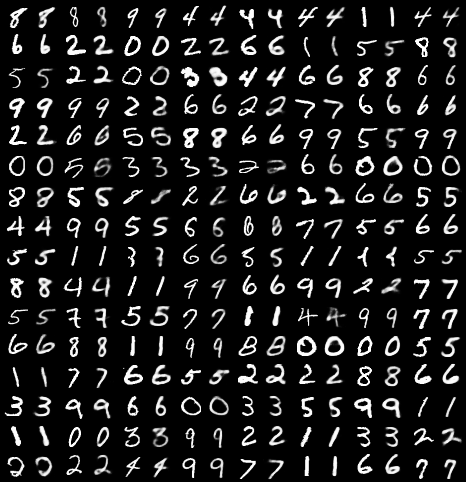 8 8 8 8 9 9 4 4 4 4 4 4 1 1 4 4
6 6 2 2 0 0 2 2 6 6 1 1 5 5 8 8
5 5 2 2 0 0 3 3 4 4 6 6 8 8 6 6
9 9 9 9 2 2 6 6 2 2 7 7 6 6 6 6
2 2 6 6 5 5 8 8 6 6 9 9 5 5 9 9
0 0 5 5 3 3 3 3 2 2 6 6 0 0 0 0
8 8 5 5 8 8 2 2 6 6 2 2 6 6 5 5
4 4 9 9 5 5 6 6 8 8 7 7 5 5 6 6
5 5 1 1 3 3 6 6 5 5 1 1 1 1 5 5
8 8 4 4 1 1 9 9 6 6 9 9 2 2 7 7
5 5 7 7 5 5 7 7 1 1 4 4 9 9 7 7
6 6 8 8 1 1 9 9 8 8 0 0 0 0 5 5
1 1 7 7 6 6 5 5 2 2 2 2 8 8 6 6
3 3 9 9 6 6 0 0 3 3 5 5 9 9 1 1
1 1 0 0 3 3 9 9 2 2 1 1 3 3 2 2
2 2 2 2 4 4 9 9 7 7 1 1 6 6 7 7